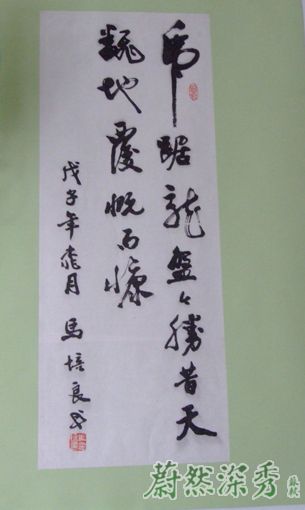 虎踞龍盘今勝昔天
翻地覆慨而慷
戊子年月 馬培良书
蔚然深秀